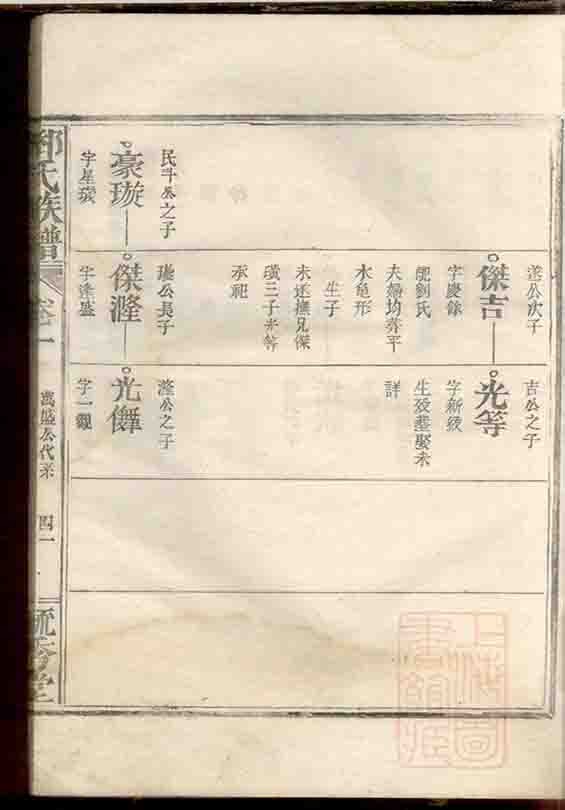 公次子
傑吉
字慶餘
配劉氏
夫婦均葬平
水龜形
生子
未述撫兄傑
三子光等
承祀
吉公之子
光等
字新
生殁葬娶未
詳
民斗公之子
豪璇
字星
公長子
傑
字逢盛
公之子
光
字一
氏族譜
卷一
萬盛公代系
四一
上海圖書館藏